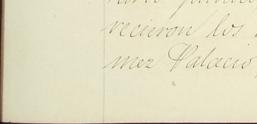 recieron los
mez Palacio,